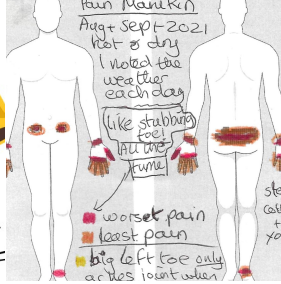 Pain Manikin
Aug + Sept 2021
Hot & dry
I noted the
weather
each day
Like stubbing
toe!
All the
time
worset pain
least pain
big left toe only
aches joint when